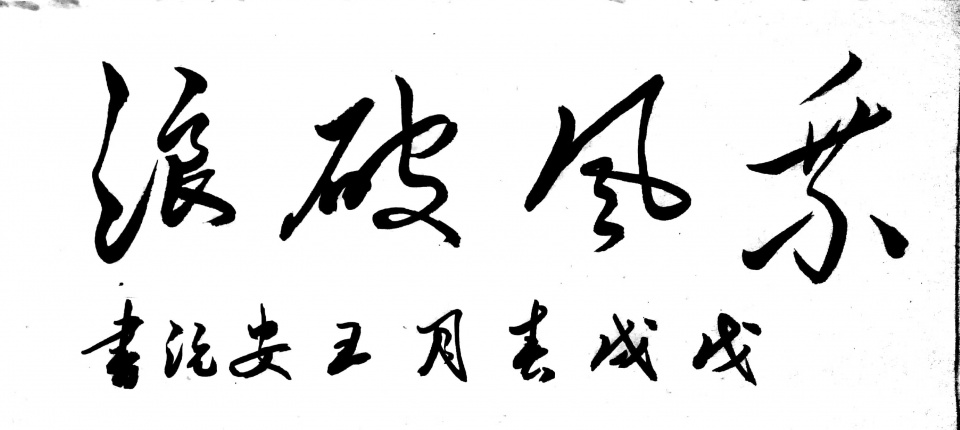 乘風破浪
戊戌春月王安泛書